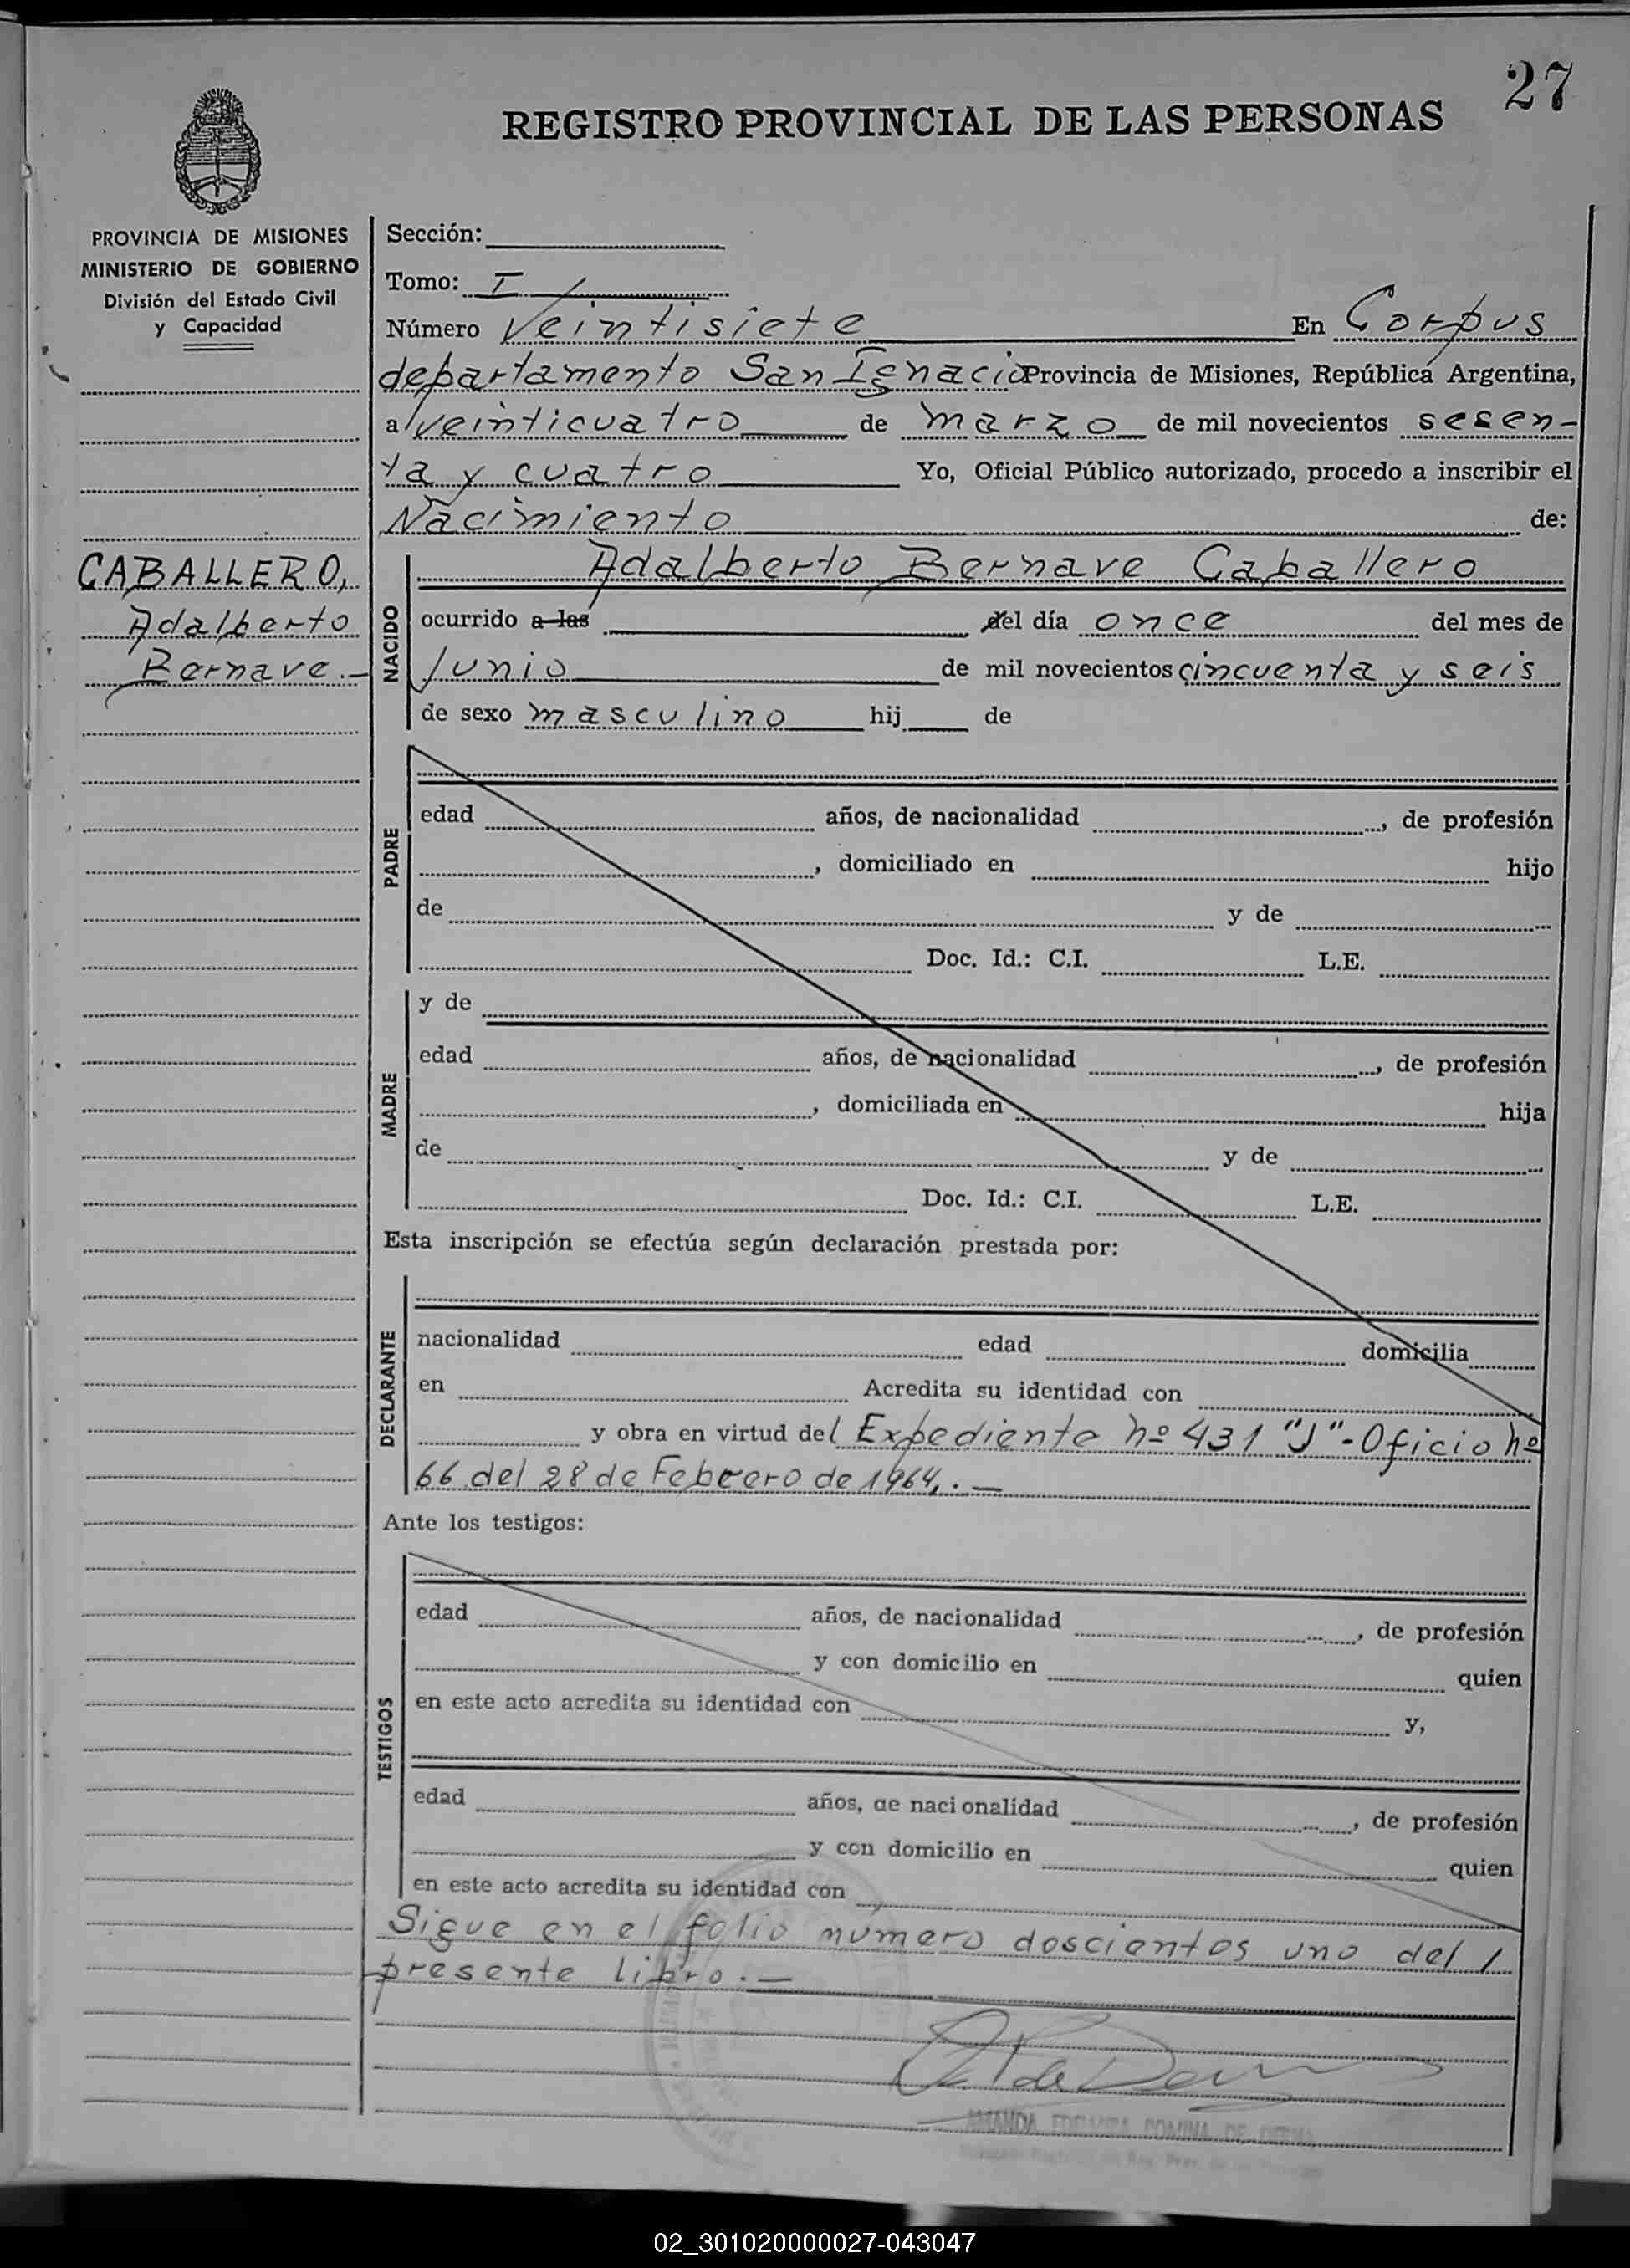 27
REGISTRO PROVINCIAL DE LAS PERSONAS
PROVINCIA DE MISIONES
MINISTERIO DE GOBIERNO
División del Estado Civil
y Capacidad
CABALLERO,
Adalberto
Bernave.-
Sección:
Tomo: I
Número Veintisiete En Corpus
departamento San Ignacio Provincia de Misiones, República Argentina,
a veinticuatro de marzo de mil novecientos sesen-
ta y cuatro Yo, Oficial Público autorizado, procedo a inscribir el
Nacimiento de:
NACIDO
Adalberto Bernave Caballero
ocurrido a las del día once del mes de
Junio de mil novecientos cincuenta y seis
de sexo masculino hij de
PADRE
edad años, de nacionalidad , de profesión
, domiciliado en hijo
de y de
Doc. Id.: C.I. L.E.
MADRE
y de
edad años, de nacionalidad , de profesión
, domiciliada en hija
de y de
Doc. Id.: C.I. L.E.
Esta inscripción se efectúa según declaración prestada por:
DECLARANTE
nacionalidad edad domicilia
en Acredita su identidad con
y obra en virtud del Expediente nº 431 "J"-Oficio nº
66 del 28 de Febrero de 1964.-
Ante los testigos:
TESTIGOS
edad años, de nacionalidad , de profesión
y con domicilio en quien
en este acto acredita su identidad con y,
edad años, de nacionalidad , de profesión
y con domicilio en quien
en este acto acredita su identidad con
Sigue en el folio numero doscientos uno del
presente libro.-
AMANDA DE
02_301020000027-043047